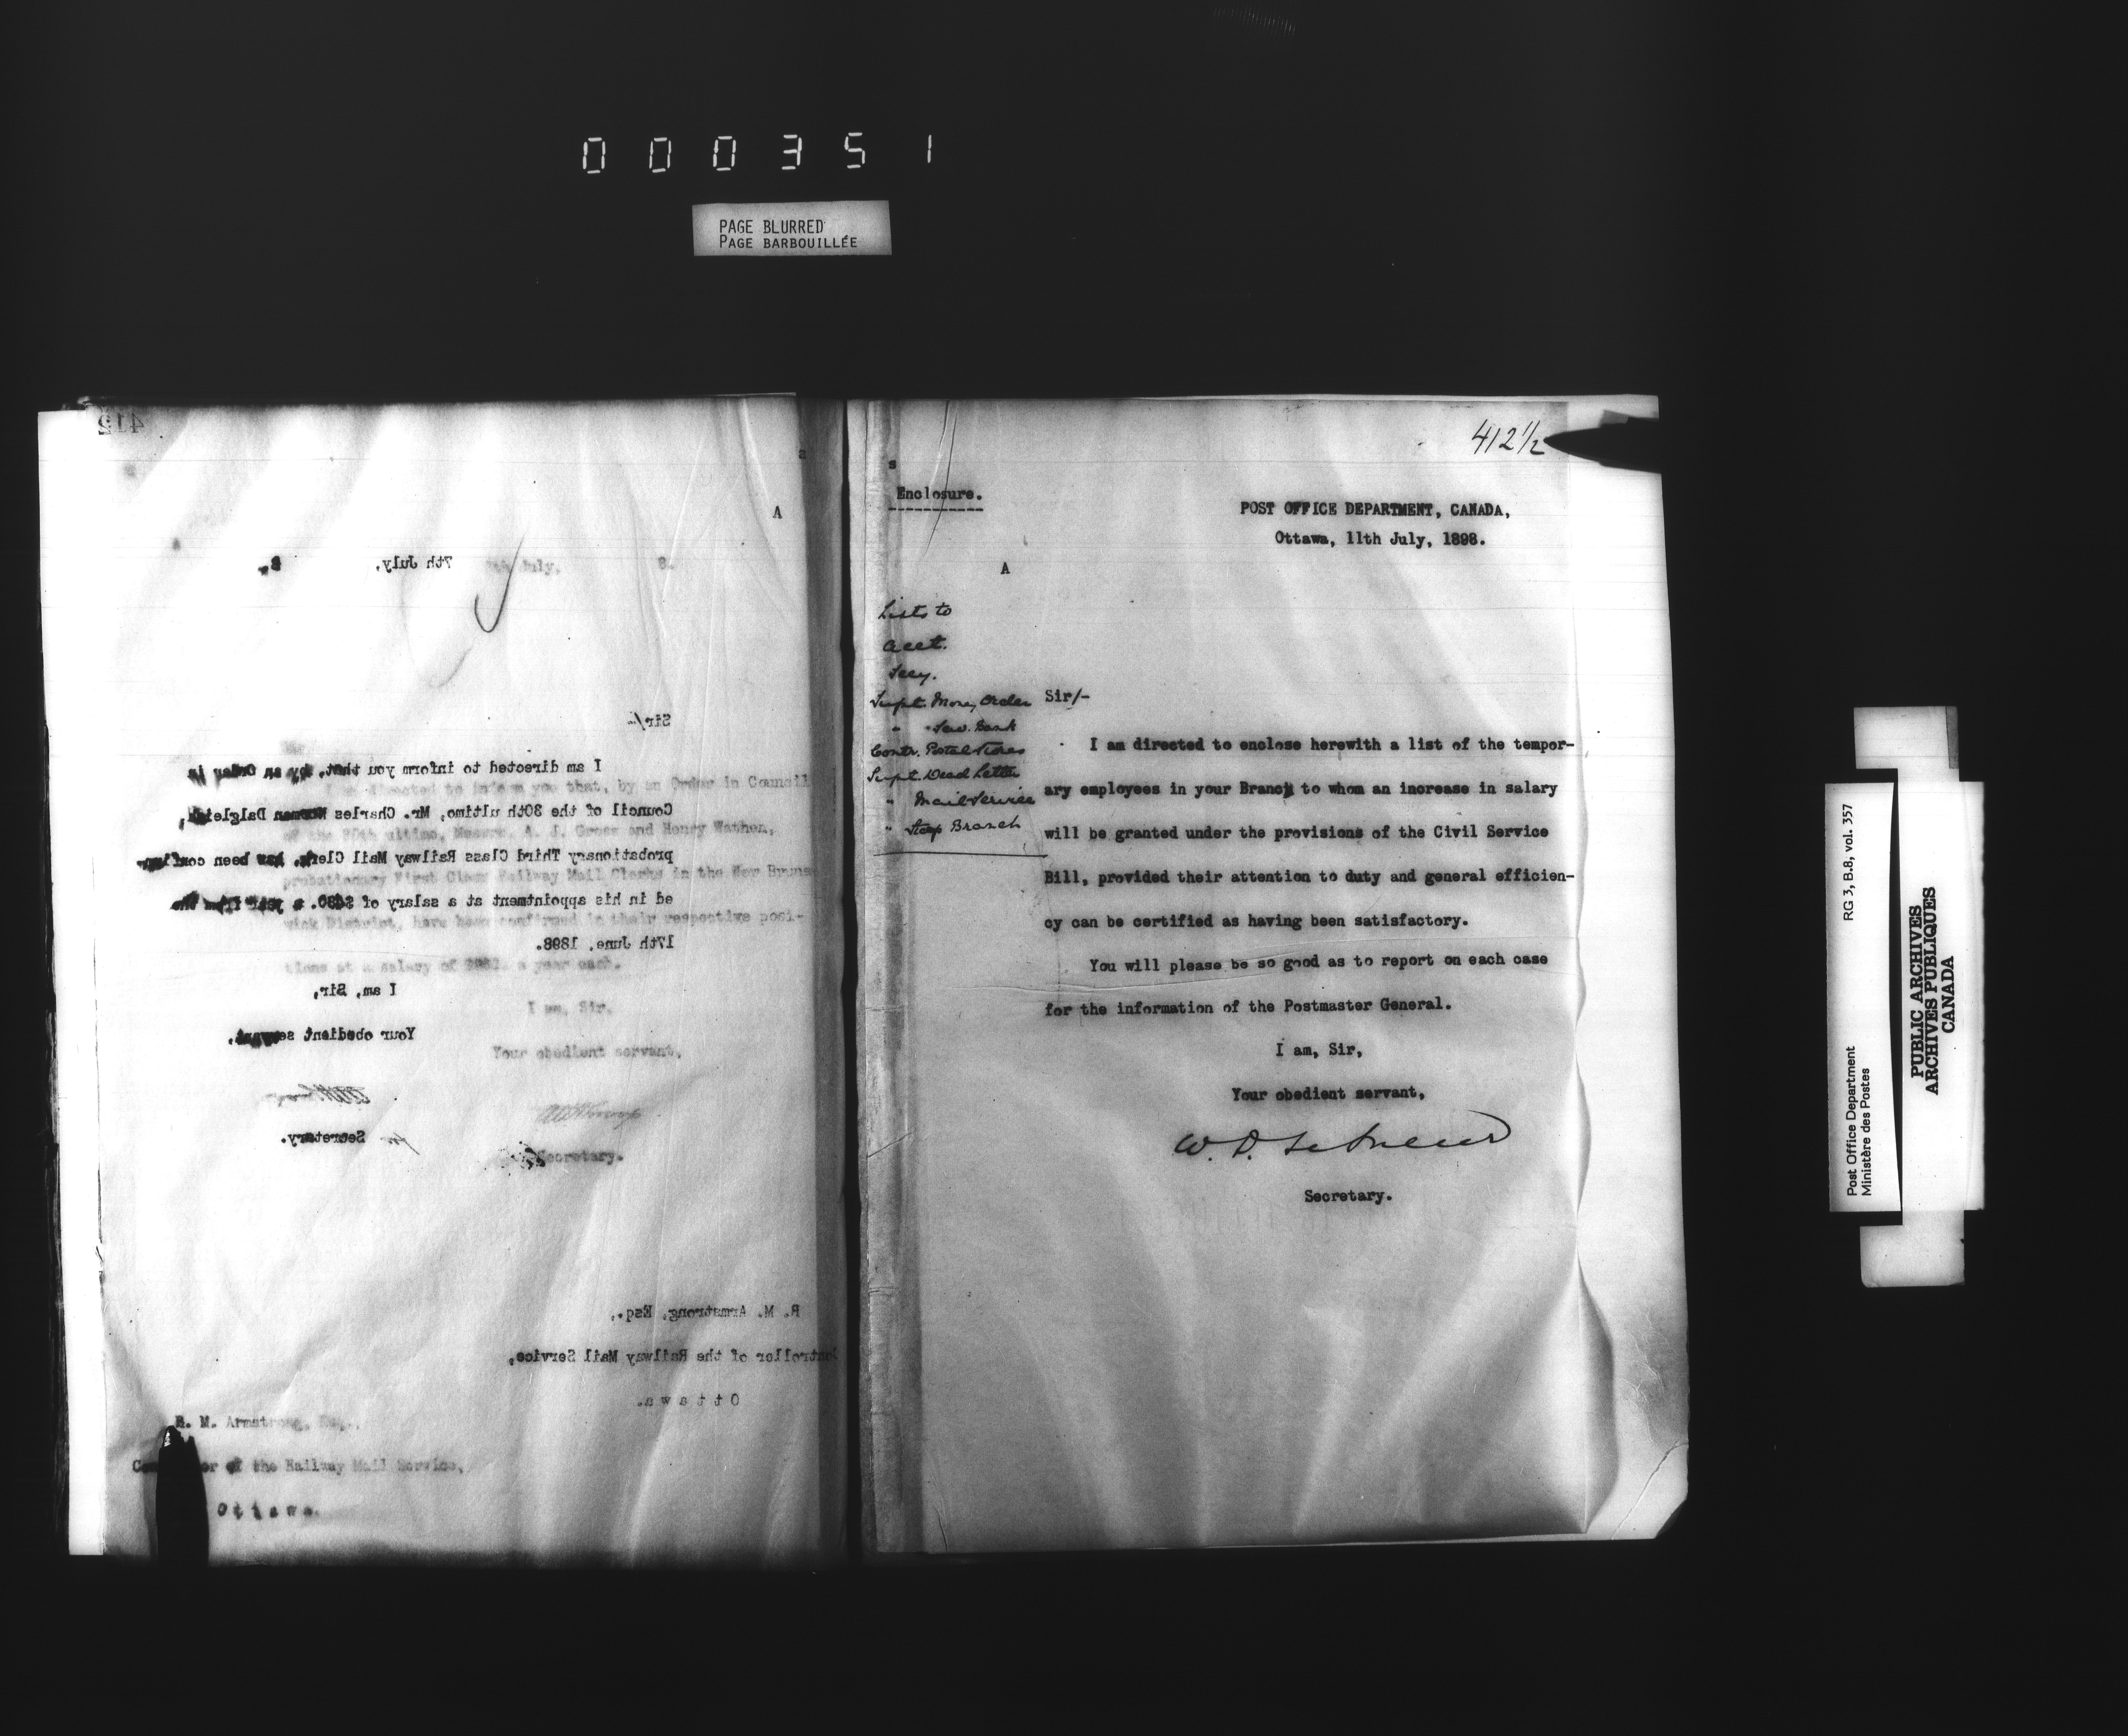 000351
PAGE BLURRED
PAGE BARBOUILLÉE
412
A
7th July, 8.
July, 8.
Sir/-
I am directed to inform you that, by an Order in
Council of the 30th ultimo, Mr. Charles Norman Dalgleish,
probationary Third Class Railway Mail Clerk, has been confirm-
ed in his appointment at a salary of a year from the
17th June, 1898.
I am, Sir,
Your obedient servant,
Secretary.
R. M. Armstrong, Esq.,
Controller of the Railway Mail Service,
Ottawa.
I am directed to inform you that, by an Order in Council
of the 30th ultimo, Messrs. A. J. Gross and Henry Wathen,
probationary First Class Railway Mail Clerks in the New Bruns-
wick District, have been confirmed in their respective posi-
tions at a salary of a year each.
I am, Sir,
Your obedient servant,
Secretary.
R. M. Armstrong, Esq.,
of the Railway Mail Service,
Ottawa.
412 1/2
s
Enclosure.
POST OFFICE DEPARTMENT, CANADA,
Ottawa, 11th July, 1898.
A
Lists to
Acct.
Secy.
Supt. Money Order
" Sav. Bank
Contr. Postal Stores
Supt. Dead Letter
" Mail Service
" Stamp Branch
Sir/-
I am directed to enclose herewith a list of the tempor-
ary employees in your Branch to whom an increase in salary
will be granted under the provisions of the Civil Service
Bill, provided their attention to duty and general efficien-
cy can be certified as having been satisfactory.
You will please be so good as to report on each case
for the information of the Postmaster General.
I am, Sir,
Your obedient servant,
W. D. LeSueur
Secretary.
Post Office Department
Ministère des Postes
RG 3, B.8, vol. 357
PUBLIC ARCHIVES
ARCHIVES PUBLIQUES
CANADA